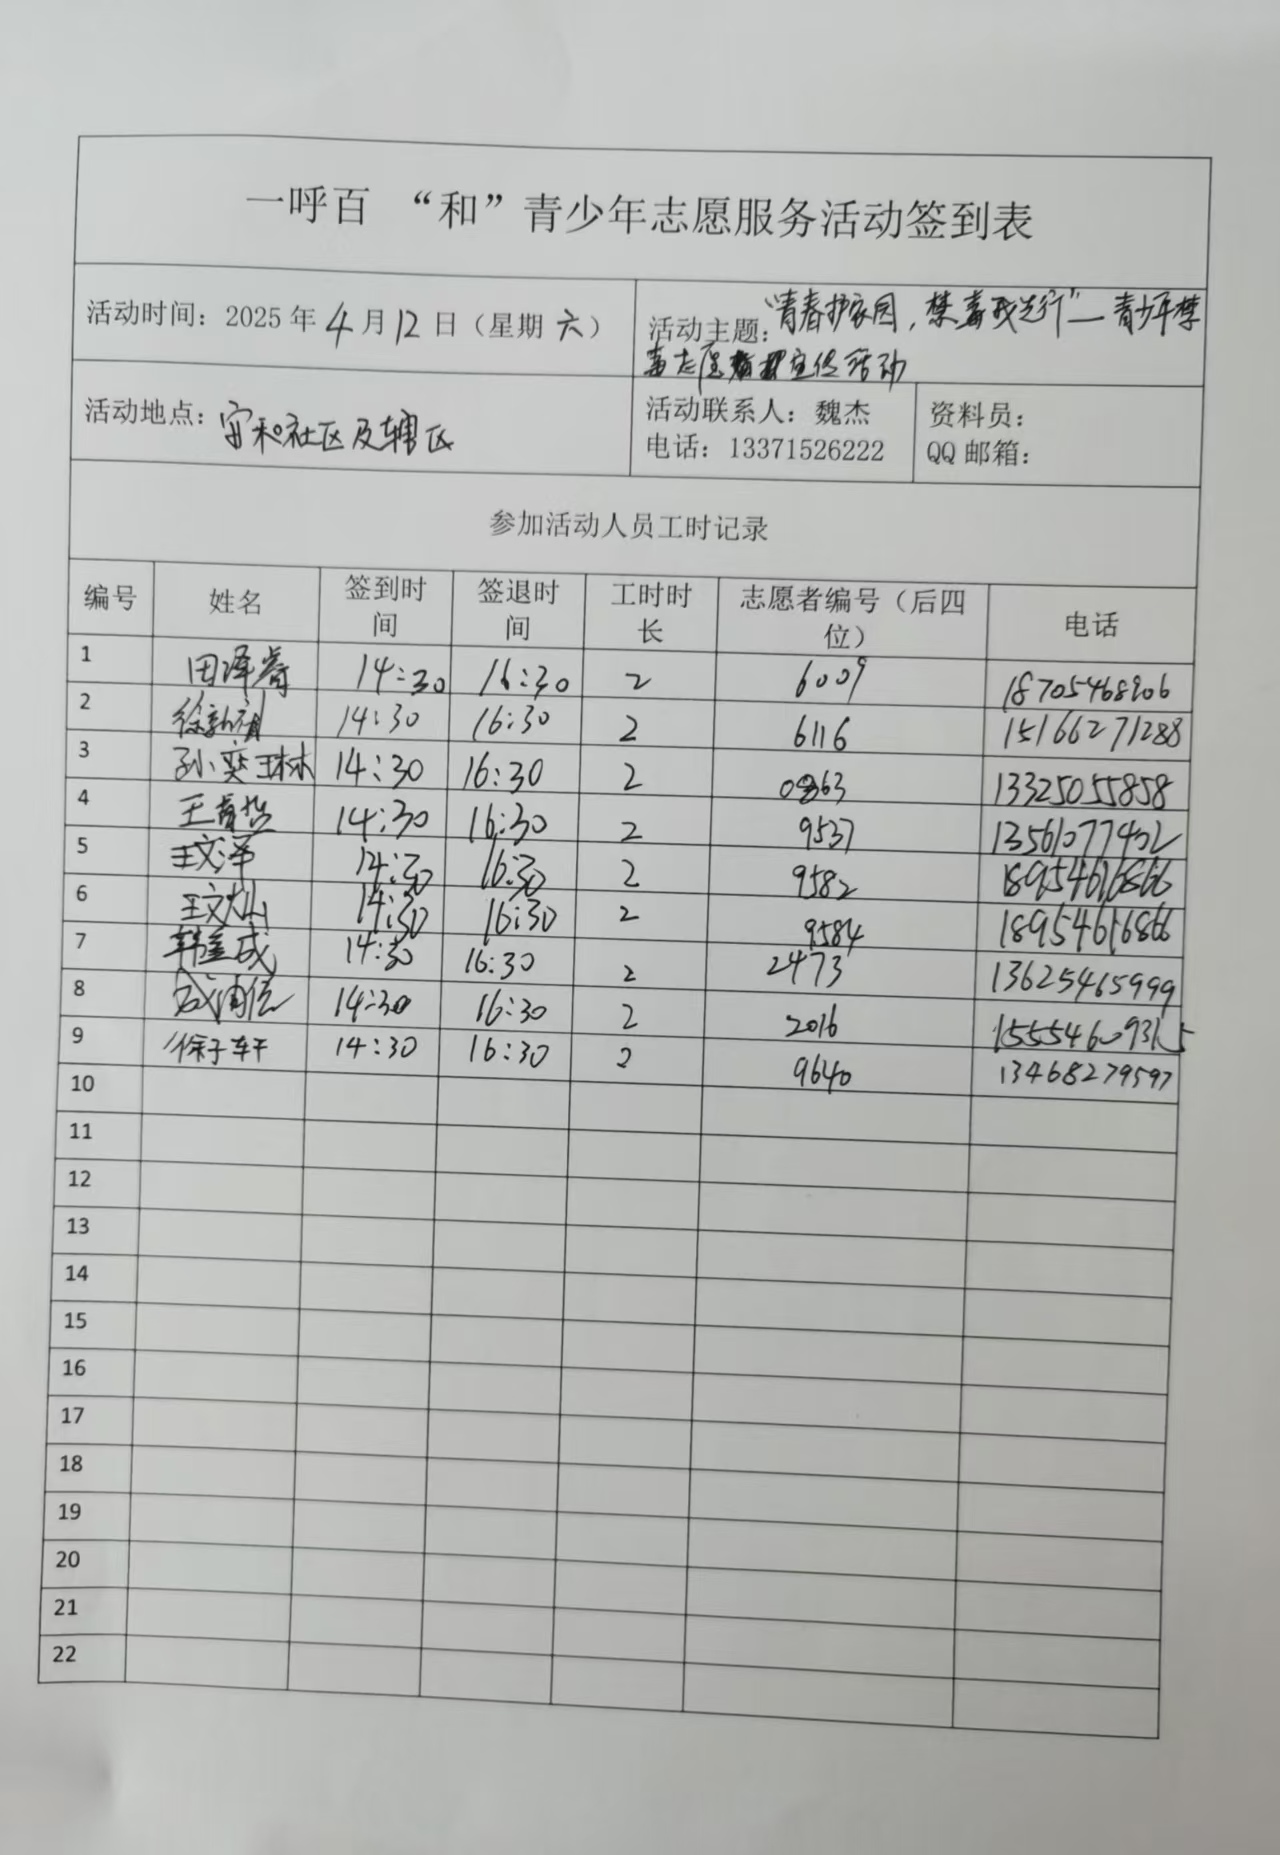 一呼百 “和”青少年志愿服务活动签到表
活动时间：2025年4月12日（星期六）
活动主题：“青春护家园，禁毒我先行”—青少年禁
毒志愿宣传活动
活动地点：安和社区及辖区
活动联系人：魏杰
电话：13371526222
资料员：
QQ邮箱：
参加活动人员工时记录
编号 姓名 签到时间 签退时间 工时时长 志愿者编号（后四位） 电话
1 田泽睿 14:30 16:30 2 6009 18705468206
2 14:30 16:30 2 6116 15166271288
3 孙奕琳 14:30 16:30 2 0863 13325055858
4 王 14:30 16:30 2 9537 13561077402
5 王文泽 14:30 16:30 2 9582 18954616866
6 王文灿 14:30 16:30 2 9584 18954616866
7 韩 成 14:30 16:30 2 2473 13625465999
8 14:30 16:30 2 2016
9 徐子轩 14:30 16:30 2 9640 13468279597
10
11
12
13
14
15
16
17
18
19
20
21
22